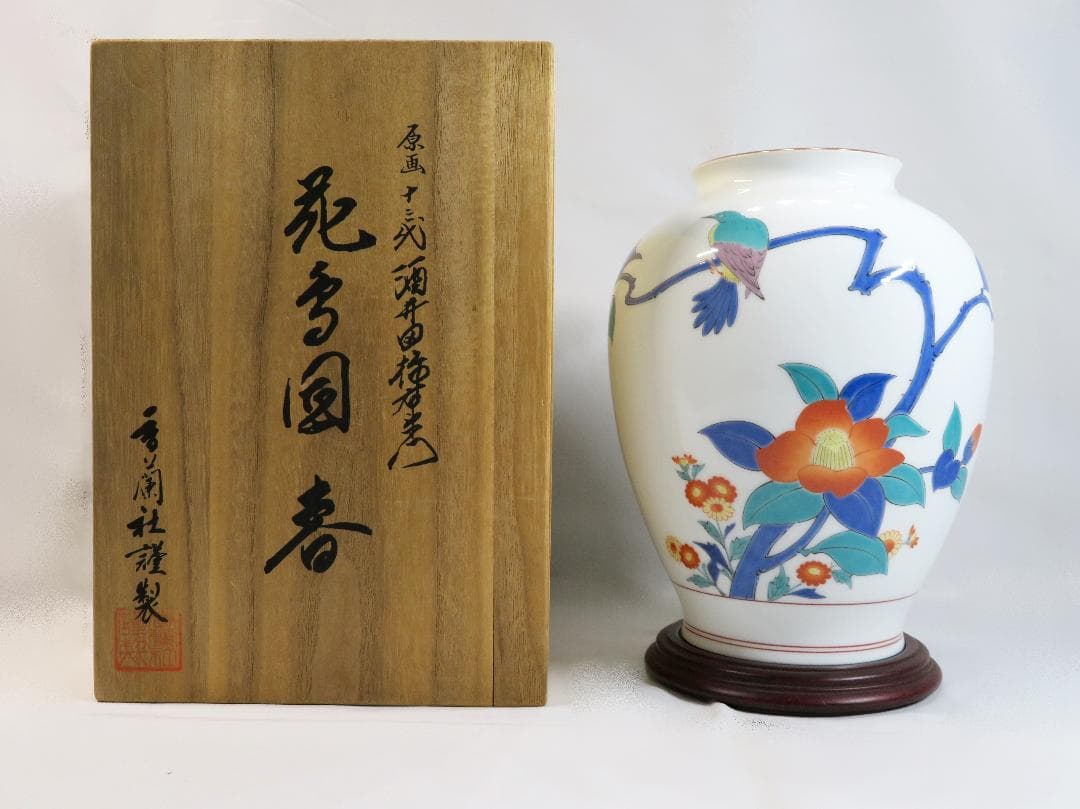 原画 十三代 酒井田柿右衛門
花鳥図 春
香蘭社謹製